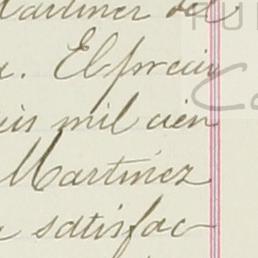 Martinez del
a. El precio
is mil cien
Martinez
a satisfac-